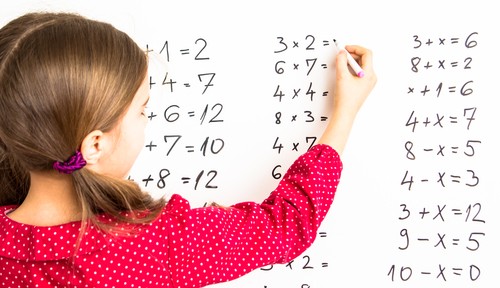 + 1 = 2
+ 4 = 7
+ 6 = 12
+ 7 = 10
+ 8 = 12
3 × 2 =
6 × 7 =
4 × 4 =
8 × 3 =
4 × 7
6
=
× 2 =
3 + x = 6
8 + x = 2
x + 1 = 6
4 + x = 7
8 - x = 5
4 - x = 3
3 + x = 12
9 - x = 5
10 - x = 0